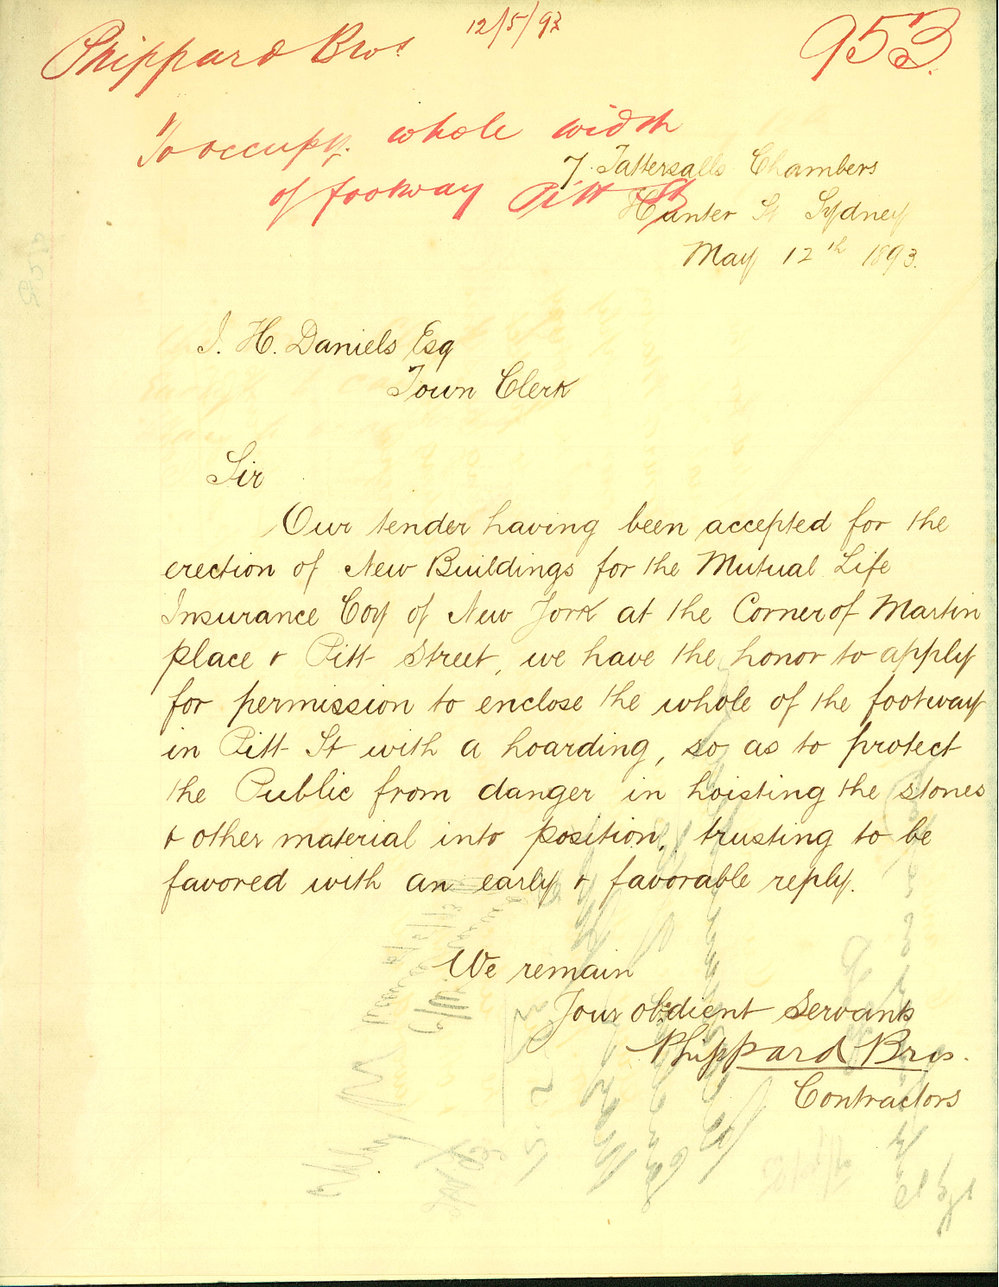 Phippard Bros 12/5/93 953.
To occupy whole width
of footway Pitt St
7. Tattersalls Chambers
Hunter St Sydney
May 12th 1893.
J. H. Daniels Esq
Town Clerk
Sir
Our tender having been accepted for the
erection of New Buildings for the Mutual Life
Insurance Coy of New York at the Corner of Martin
place & Pitt Street, we have the honor to apply
for permission to enclose the whole of the footway
in Pitt St with a hoarding, so as to protect
the Public from danger in hoisting the stones
& other material into position, trusting to be
favored with an early & favorable reply.
We remain
Your obedient servants
Phippard Bros.
Contractors